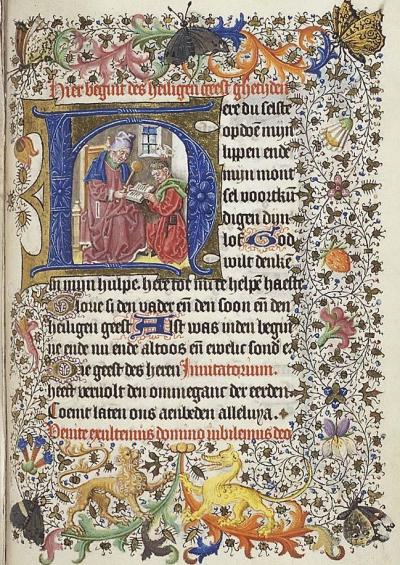 Hier begint des heiligen geest ghetyden
Here du selste
opdoē mijn
lyppen ende
mijn mont
sel voortkū
digen dyn
lof God
wilt denkē
in mijn hulpe. here tot mi te helpē haeste.
Glorie si den vader eñ den soon eñ den
heiligen geest Alst was inden begin
ne ende nu ende altoos eñ ewelic sond e.
Die geest des heren Invitatorium.
heeft vervolt den ommeganc der eerden.
Coemt laten ons aenbeden alleluya.
Venite exultemus domino iubilemus deo